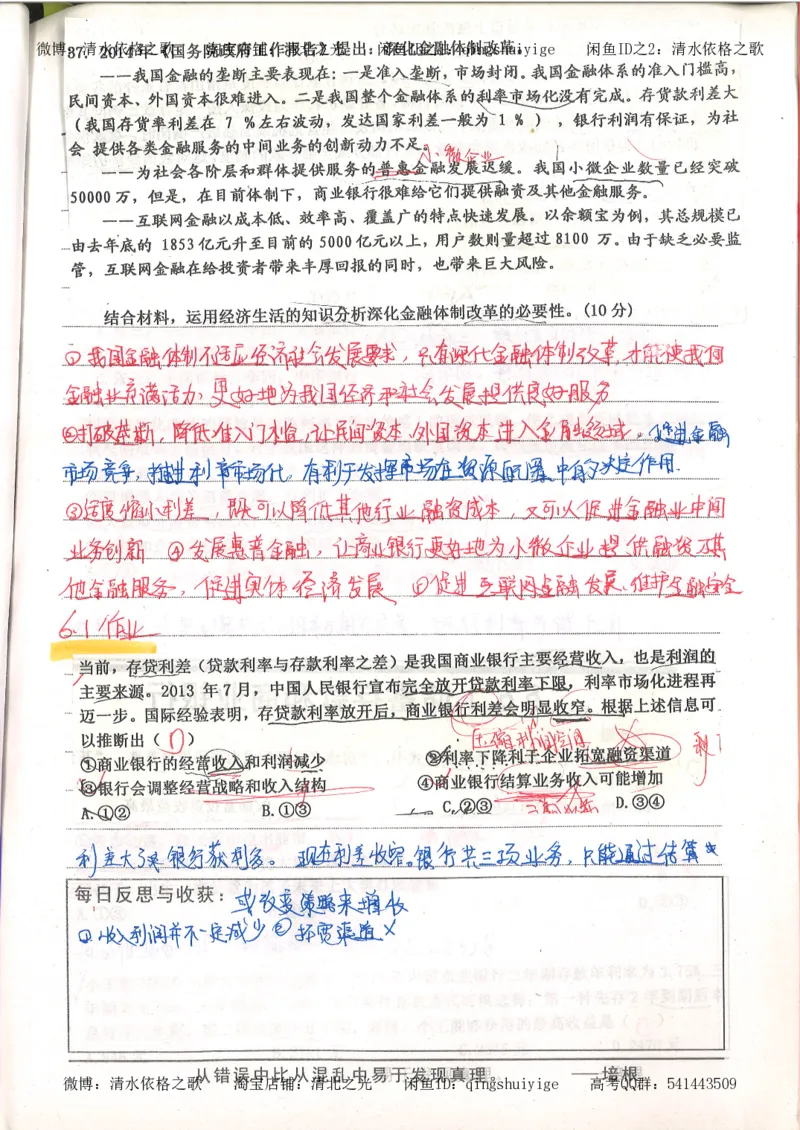 微博：清水依格之歌　淘宝店铺：清北之光　闲鱼ID：qingshuiyige　闲鱼ID之2：清水依格之歌
37. 2014年《国务院政府工作报告》提出：深化金融体制改革。
——我国金融的垄断主要表现在：一是准入垄断，市场封闭。我国金融体系的准入门槛高，
民间资本、外国资本很难进入。二是我国整个金融体系的利率市场化没有完成。存贷款利差大
（我国存贷率利差在 7 %左右波动，发达国家利差一般为 1 % ），银行利润有保证，为社
会 提供各类金融服务的中间业务的创新动力不足。
小微企业
——为社会各阶层和群体提供服务的普惠金融发展迟缓。我国小微企业数量已经突破
50000 万，但是，在目前体制下，商业银行很难给它们提供融资及其他金融服务。
——互联网金融以成本低、效率高、覆盖广的特点快速发展。以余额宝为例，其总规模已
由去年底的 1853 亿元升至目前的 5000 亿元以上，用户数则量超过 8100 万。由于缺乏必要监
管，互联网金融在给投资者带来丰厚回报的同时，也带来巨大风险。
结合材料，运用经济生活的知识分析深化金融体制改革的必要性。(10 分)
①我国金融体制不适应经济社会发展要求，只有深化金融体制改革，才能使我国
金融业充满活力，更好地为我国经济和社会发展提供良好服务
②打破垄断，降低准入门槛，让民间资本、外国资本进入金融领域，促进金融
市场竞争，推进利率市场化，有利于发挥市场在资源配置中的决定作用.
③适度缩小利差，既可以降低其他行业融资成本，又可以促进金融业中间
业务创新 ④发展惠普金融，让商业银行更好地为小微企业提供融资及其
他金融服务，促进实体经济发展 ④促进互联网金融发展，维护金融安全
6.1作业
当前，存贷利差（贷款利率与存款利率之差）是我国商业银行主要经营收入，也是利润的
主要来源。2013 年 7 月，中国人民银行宣布完全放开贷款利率下限，利率市场化进程再
迈一步。国际经验表明，存贷款利率放开后，商业银行利差会明显收窄。根据上述信息可
以推断出（ D ）
压缩利润空间
①商业银行的经营收入和利润减少　②利率下降利于企业拓宽融资渠道
③银行会调整经营战略和收入结构　④商业银行结算业务收入可能增加
A.①②　B.①③　C.②③　D.③④
利差大→银行获利多。 现在利差收窄，银行共三项业务，只能通过结算
每日反思与收获：或改变策略来增收
①收入利润并不一定减少 ②拓宽渠道×
从错误中比从混乱中易于发现真理。　——培根
微博：清水依格之歌　淘宝店铺：清北之光　闲鱼ID：qingshuiyige　高考QQ群：541443509